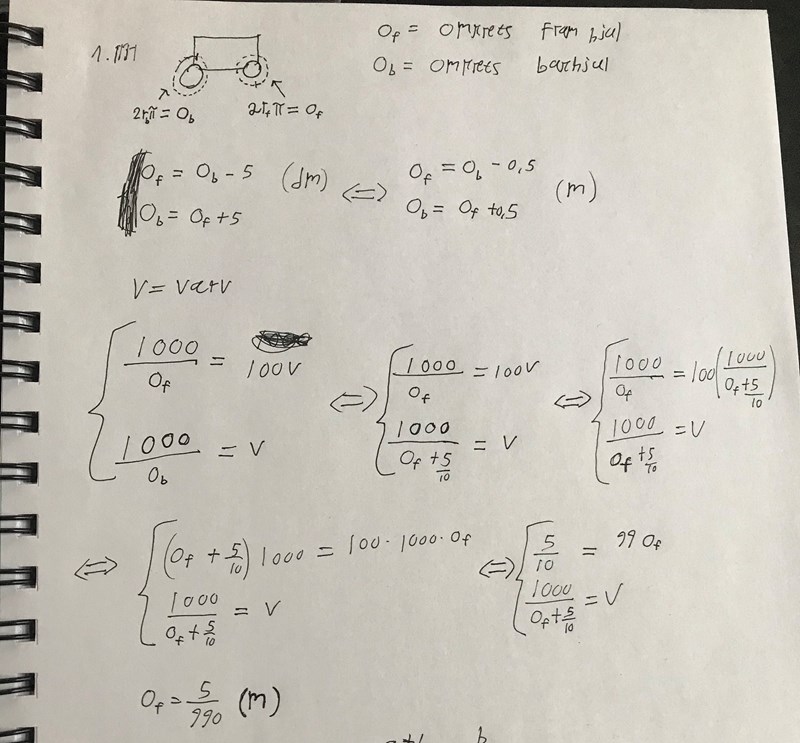 1.171
O_f = omkrets framhjul
O_b = omkrets bakhjul
2r_bπ = O_b 2r_fπ = O_f
O_f = O_b - 5 (dm) ⇔ O_f = O_b - 0,5 (m)
O_b = O_f + 5 O_b = O_f + 0,5
V = varv
1000/O_f = 100V ⇔ 1000/O_f = 100V ⇔ 1000/O_f = 100(1000/(O_f + 5/10))
1000/O_b = V 1000/(O_f + 5/10) = V 1000/(O_f + 5/10) = V
⇔ (O_f + 5/10) 1000 = 100 · 1000 · O_f ⇔ 5/10 = 99 O_f
1000/(O_f + 5/10) = V 1000/(O_f + 5/10) = V
O_f = 5/990 (m)